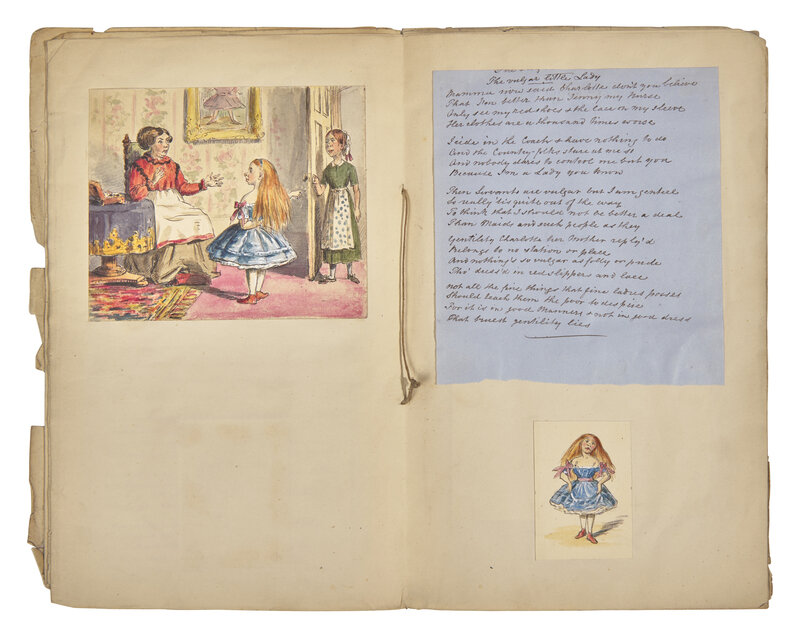 The vulgar little Lady
Mamma now said Charlotte don't you believe
That I'm better than Jenny my Nurse
Only see my red shoes & the lace on my sleeve
Her clothes are a thousand times worse
I ride in the Coach & have nothing to do
And the Country folks stare at me so
And nobody dares to control me but you
Because I'm a Lady you know
Then Servants are vulgar but I am genteel
So really tis quite out of the way
To think that I should not be better a deal
Than Maids and such people as they
Gentility Charlotte her Mother reply'd
Belongs to no station or place
And nothing's so vulgar as folly or pride
Tho' dress'd in red slippers and lace
Not all the fine things that fine ladies posses
Should teach them the poor to despise
For it is in good Manners & not in good dress
That truest gentility lies